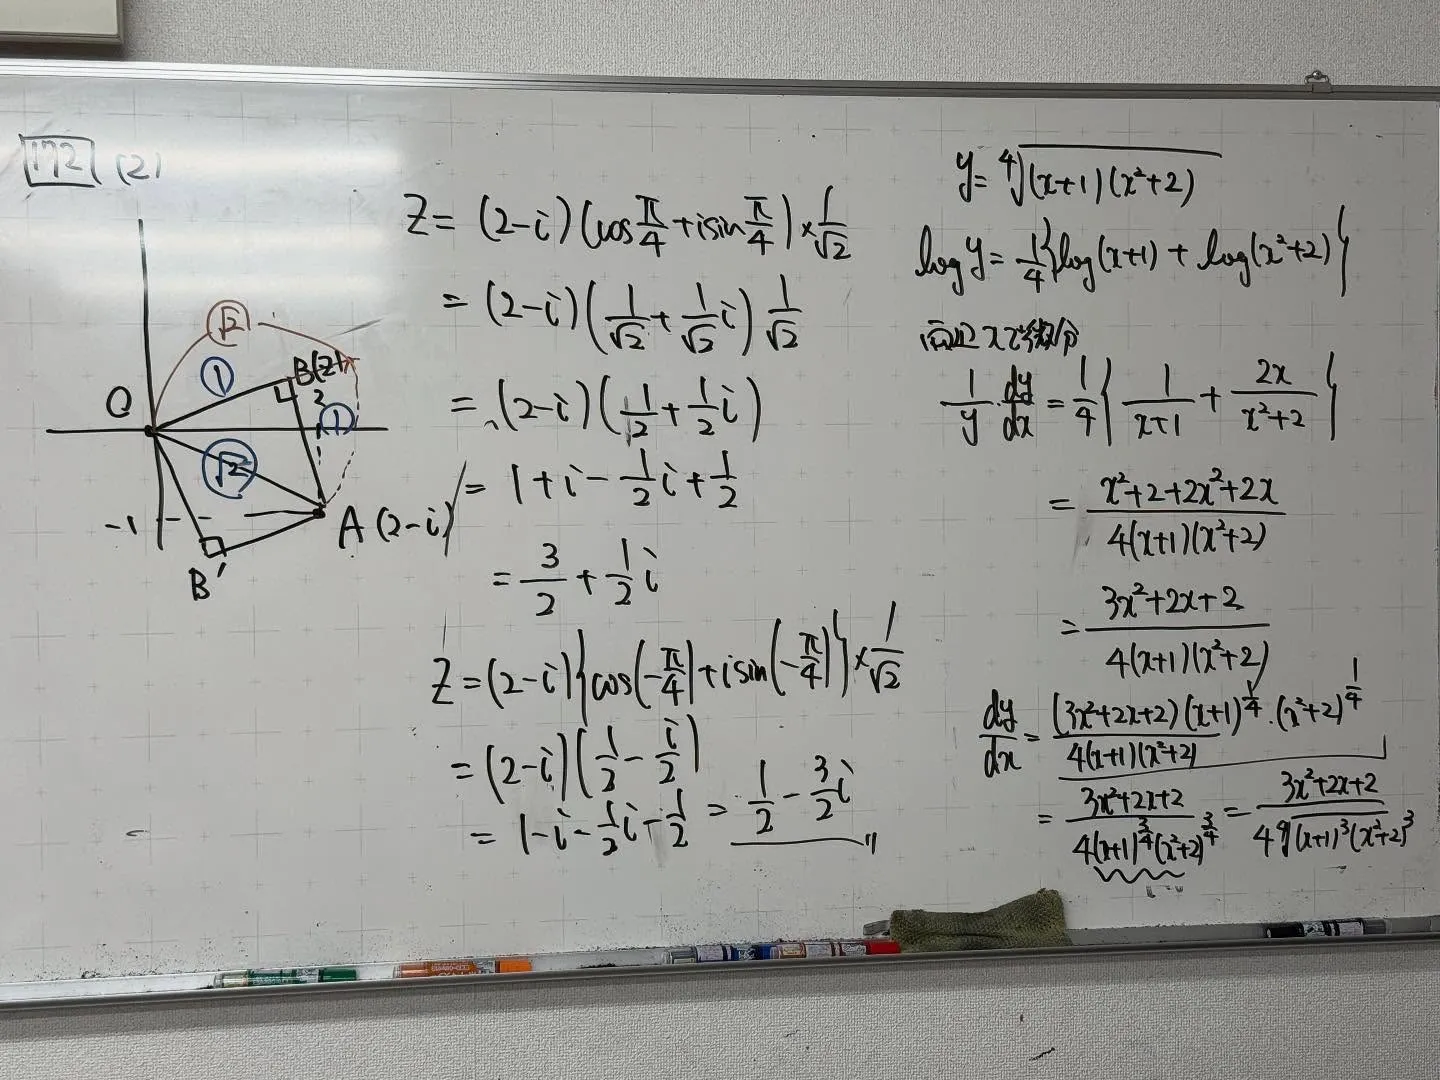 172 (2)
√2
① B(z)
O 2 ①
√2
-1 A(2-i)
B'
Z = (2-i)(cos π/4 + i sin π/4) × 1/√2
= (2-i)(1/√2 + 1/√2 i) 1/√2
= (2-i)(1/2 + 1/2 i)
= 1+i - 1/2 i + 1/2
= 3/2 + 1/2 i
Z = (2-i){cos(-π/4) + i sin(-π/4)} × 1/√2
= (2-i)(1/2 - i/2)
= 1-i - 1/2 i - 1/2 = 1/2 - 3/2 i
y = ⁴√(x+1)(x²+2)
log y = 1/4 {log(x+1) + log(x²+2)}
両辺xで微分
1/y · dy/dx = 1/4 { 1/(x+1) + 2x/(x²+2) }
= x²+2+2x²+2x / 4(x+1)(x²+2)
= 3x²+2x+2 / 4(x+1)(x²+2)
dy/dx = (3x²+2x+2)(x+1)^1/4 · (x²+2)^1/4 / 4(x+1)(x²+2)
= 3x²+2x+2 / 4(x+1)^3/4 (x²+2)^3/4 = 3x²+2x+2 / 4 ⁴√(x+1)³(x²+2)³